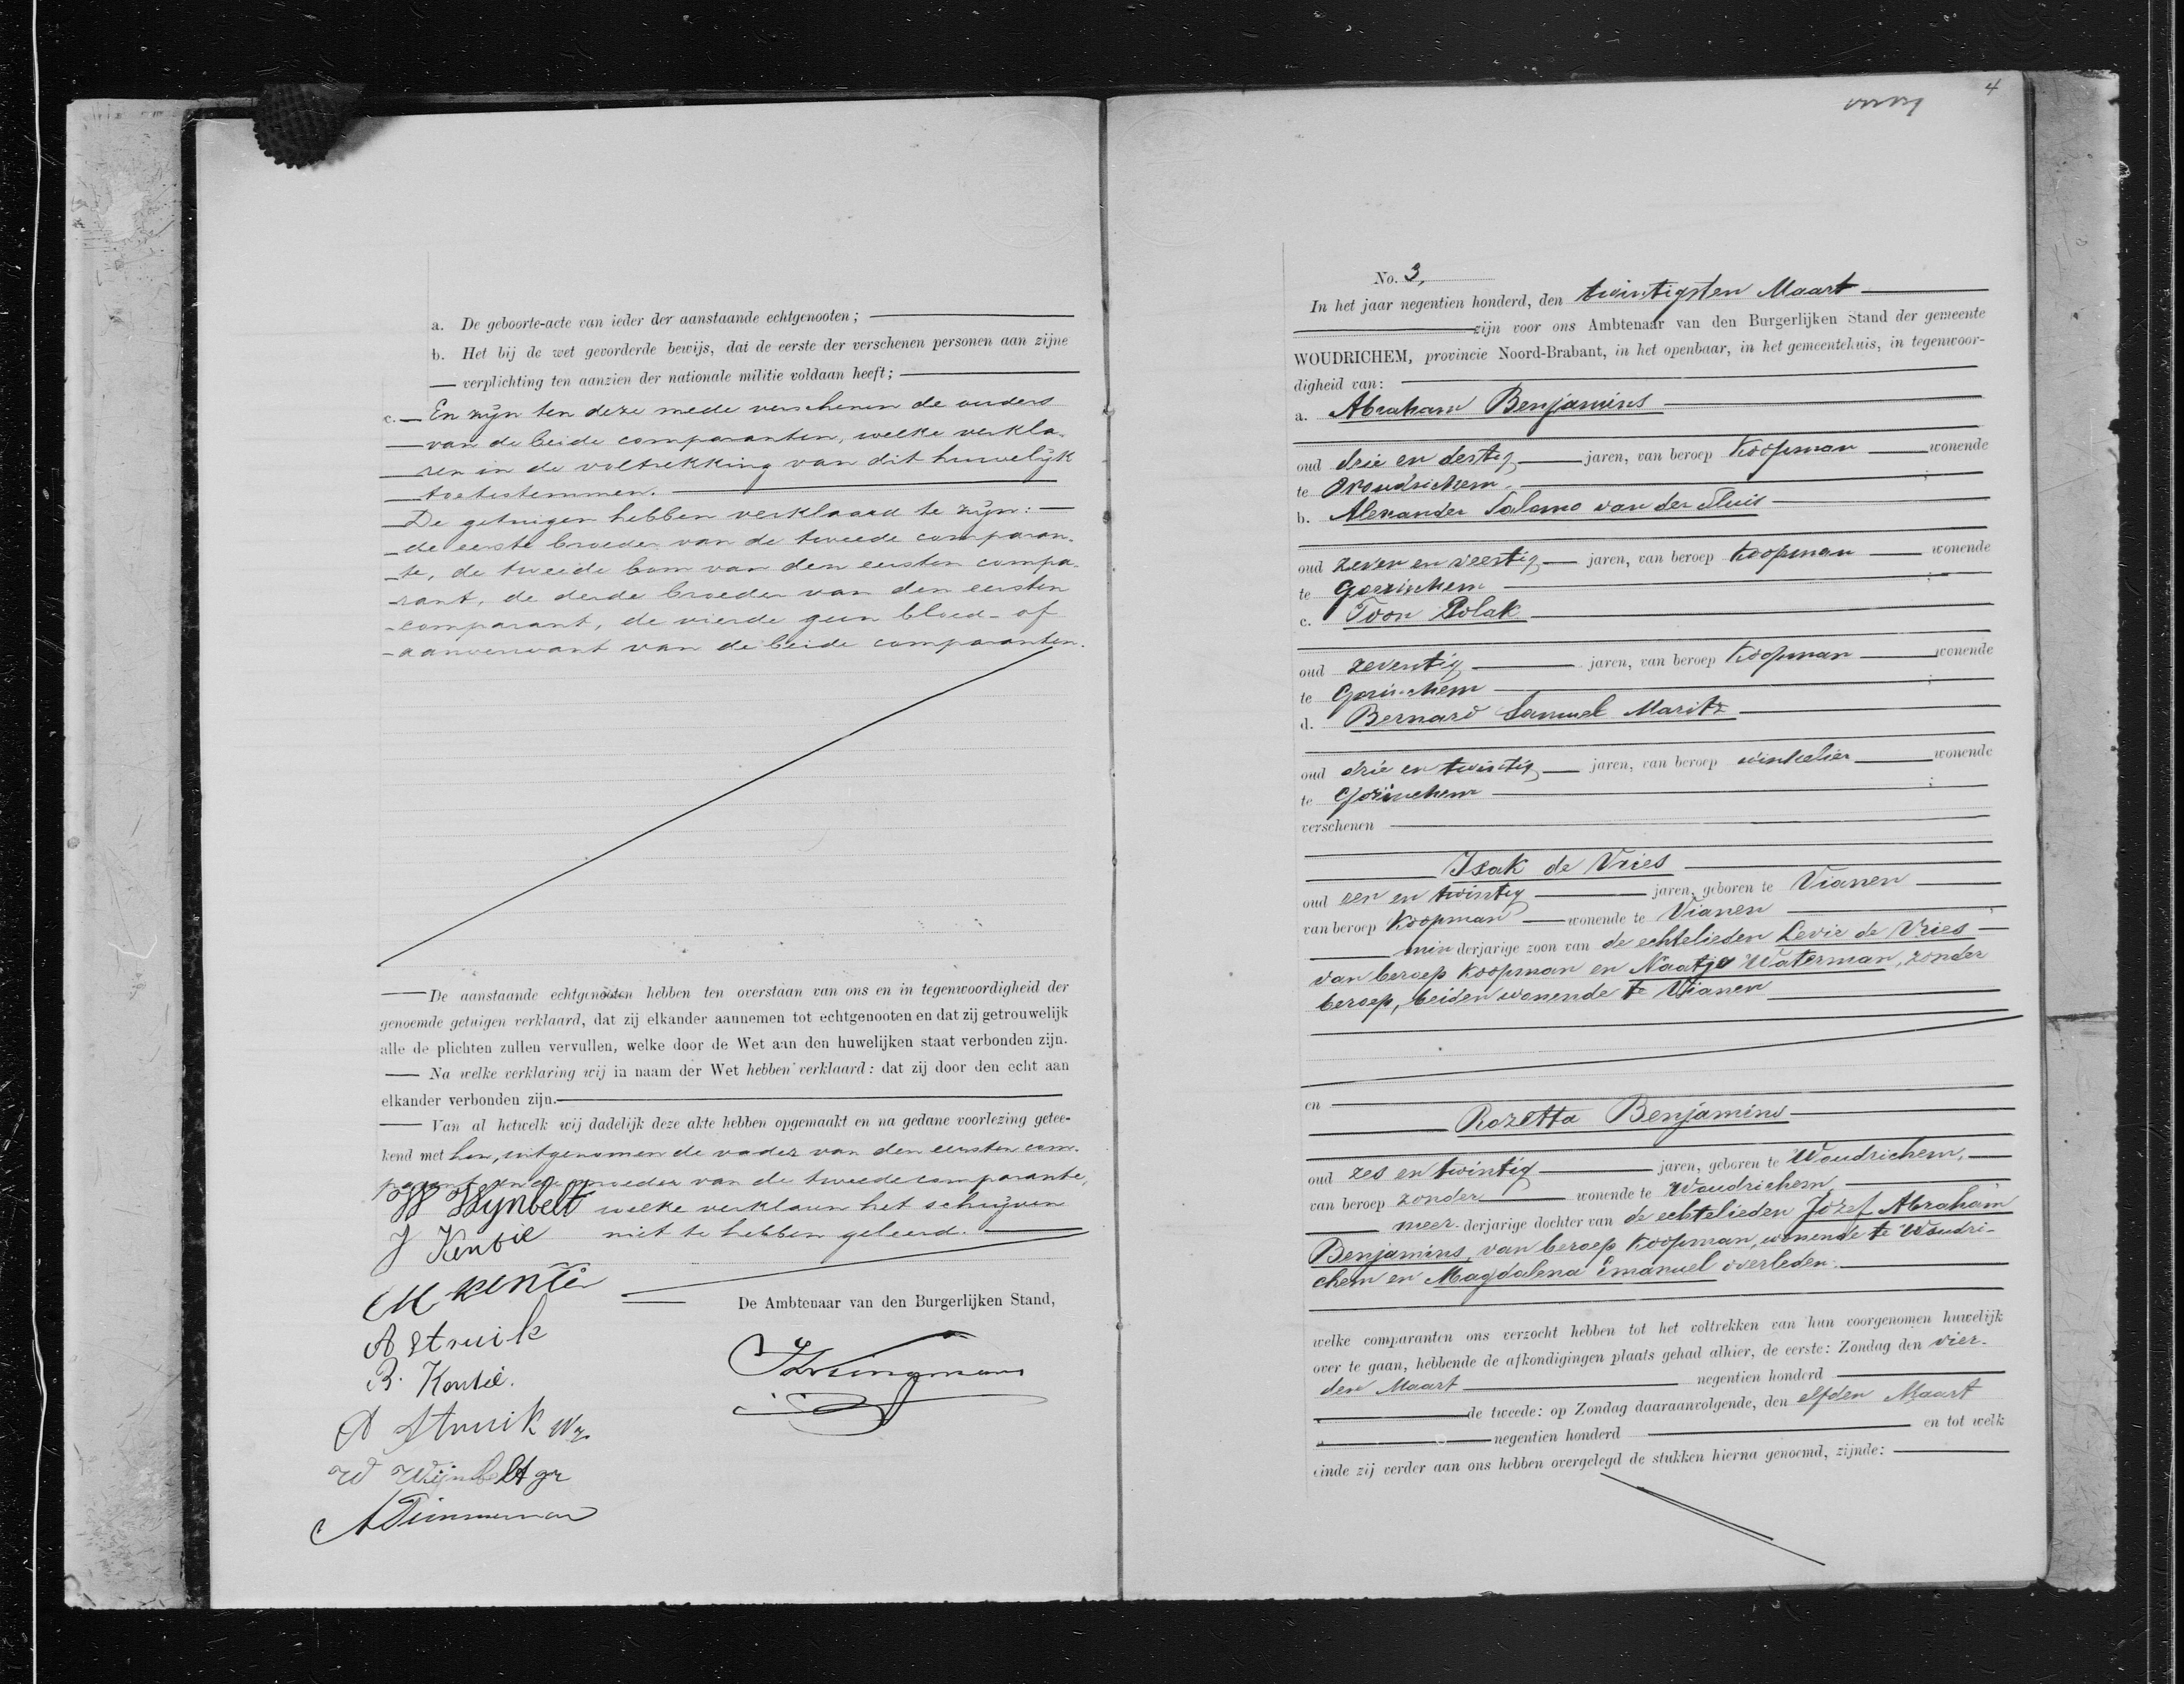 a. De geboorte-acte van ieder der aanstaande echtgenooten;
b. Het bij de wet gevorderde bewijs, dat de eerste der verschenen personen aan zijne
verplichting ten aanzien der nationale militie voldaan heeft;
c. En zijn ten deze mede verschenen de ouders
van de beide comparanten, welke verkla-
ren in de voltrekking van dit huwelijk
toetestemmen.
De getuigen hebben verklaard te zijn:
de eerste broeder van de tweede comparan-
te, de tweede oom van den eersten compa-
rant, de derde broeder van den eersten
comparant, de vierde geen bloed- of
aanverwant van de beide comparanten.
De aanstaande echtgenooten hebben ten overstaan van ons en in tegenwoordigheid der
genoemde getuigen verklaard, dat zij elkander aannemen tot echtgenooten en dat zij getrouwelijk
alle de plichten zullen vervullen, welke door de Wet aan den huwelijken staat verbonden zijn.
Na welke verklaring wij in naam der Wet hebben verklaard: dat zij door den echt aan
elkander verbonden zijn.
Van al hetwelk wij dadelijk deze akte hebben opgemaakt en na gedane voorlezing getee-
kend met hen, uitgenomen de vader van den eersten com-
parant en de moeder van de tweede comparante,
W Wijnbelt welke verklaren het schrijven
J Kentie niet te hebben geleerd.
M Kentie
De Ambtenaar van den Burgerlijken Stand,
A Struik
B. Kentie.
A Struik Wz.
W Wijnbelt gz
A Timmerman
4
No. 3,
In het jaar negentien honderd, den twintigsten Maart
zijn voor ons Ambtenaar van den Burgerlijken Stand der gemeente
WOUDRICHEM, provincie Noord-Brabant, in het openbaar, in het gemeentehuis, in tegenwoor-
digheid van:
a. Abraham Benjamins
oud drie en dertig jaren, van beroep Koopman wonende
te Woudrichem;
b. Alexander Salomo van der Sluis
oud zeven en veertig jaren, van beroep Koopman wonende
te Gorinchem;
c. Toon Polak
oud zeventig jaren, van beroep Koopman wonende
te Gorinchem;
d. Bernard Samuel Maritz
oud drie en twintig jaren, van beroep winkelier wonende
te Gorinchem;
verschenen
Isak de Vries
oud een en twintig jaren, geboren te Vianen
van beroep Koopman wonende te Vianen,
minderjarige zoon van de echtelieden Levie de Vries
van beroep Koopman en Naatje Waterman, zonder
beroep, beiden wonende te Vianen
en
Rozetta Benjamins
oud zes en twintig jaren, geboren te Woudrichem,
van beroep zonder wonende te Woudrichem,
meer-derjarige dochter van de echtelieden Jozef Abraham
Benjamins, van beroep Koopman, wonende te Woudri-
chem en Magdalena Emanuel overleden.
welke comparanten ons verzocht hebben tot het voltrekken van hun voorgenomen huwelijk
over te gaan, hebbende de afkondigingen plaats gehad alhier, de eerste: Zondag den vier-
den Maart negentien honderd
de tweede: op Zondag daaraanvolgende, den elfden Maart
negentien honderd en tot welk
einde zij verder aan ons hebben overgelegd de stukken hierna genoemd, zijnde: